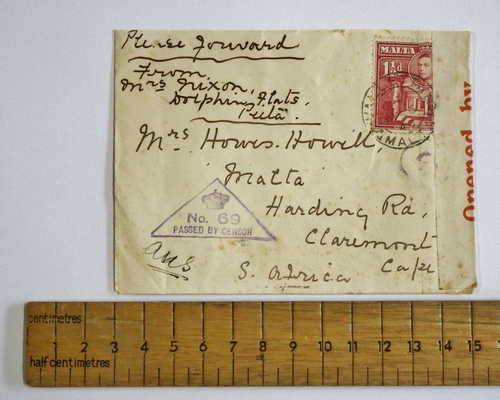 Please forward
From.
Mrs Nixon,
Dolphin Flats.
MALTA
1½d
Mrs Howes-Howell,
Malta
Harding Rd,
Claremont
Cape
S. Africa
Ans
No. 69
PASSED BY CENSOR
MAL
Opened by
centimetres
1 2 3 4 5 6 7 8 9 10 11 12 13 14 15
half centimetres